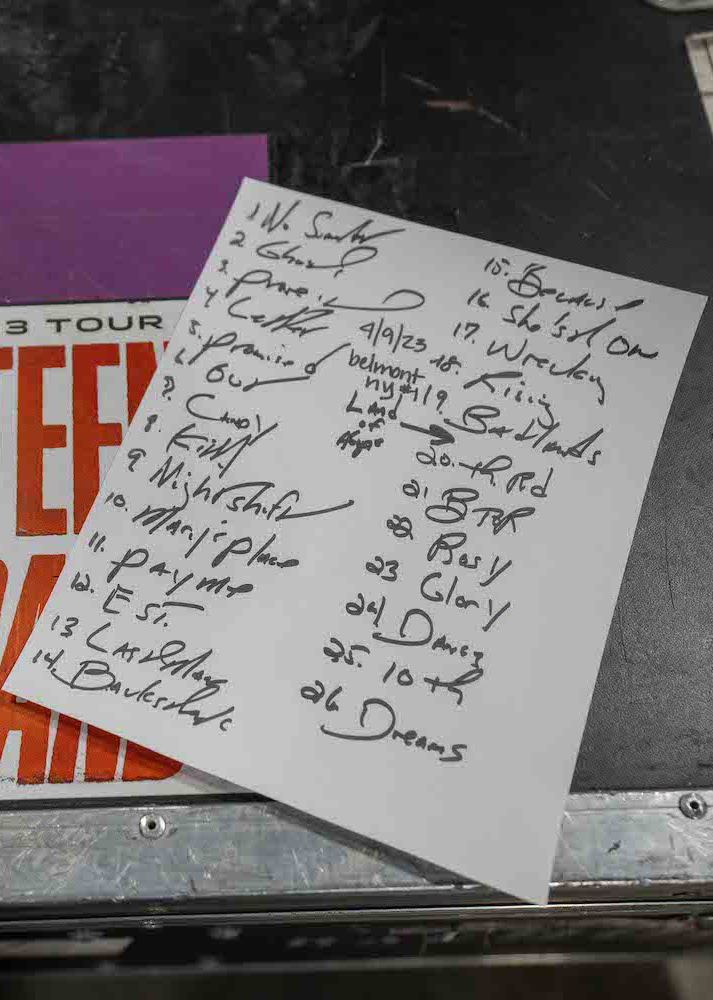 3 TOUR
TEEN
1 No Surr
2 Ghost
3. Prove it
4 Letter
5. Promised
6 Out
7. Candy
8. Kitty
9 Nightshift
10. Mary's Place
11. Pay Me
12. E ST.
13 Last Man
14. Backstreets
15. Because
16. She's the One
17. Wrecking
18. Rising
19. Badlands
20. th Rd
21. BTR
22 Rosy
23 Glory
24 Dancing
25. 10th
26 Dreams
4/9/23
belmont
ny #1
Land
of
Hope